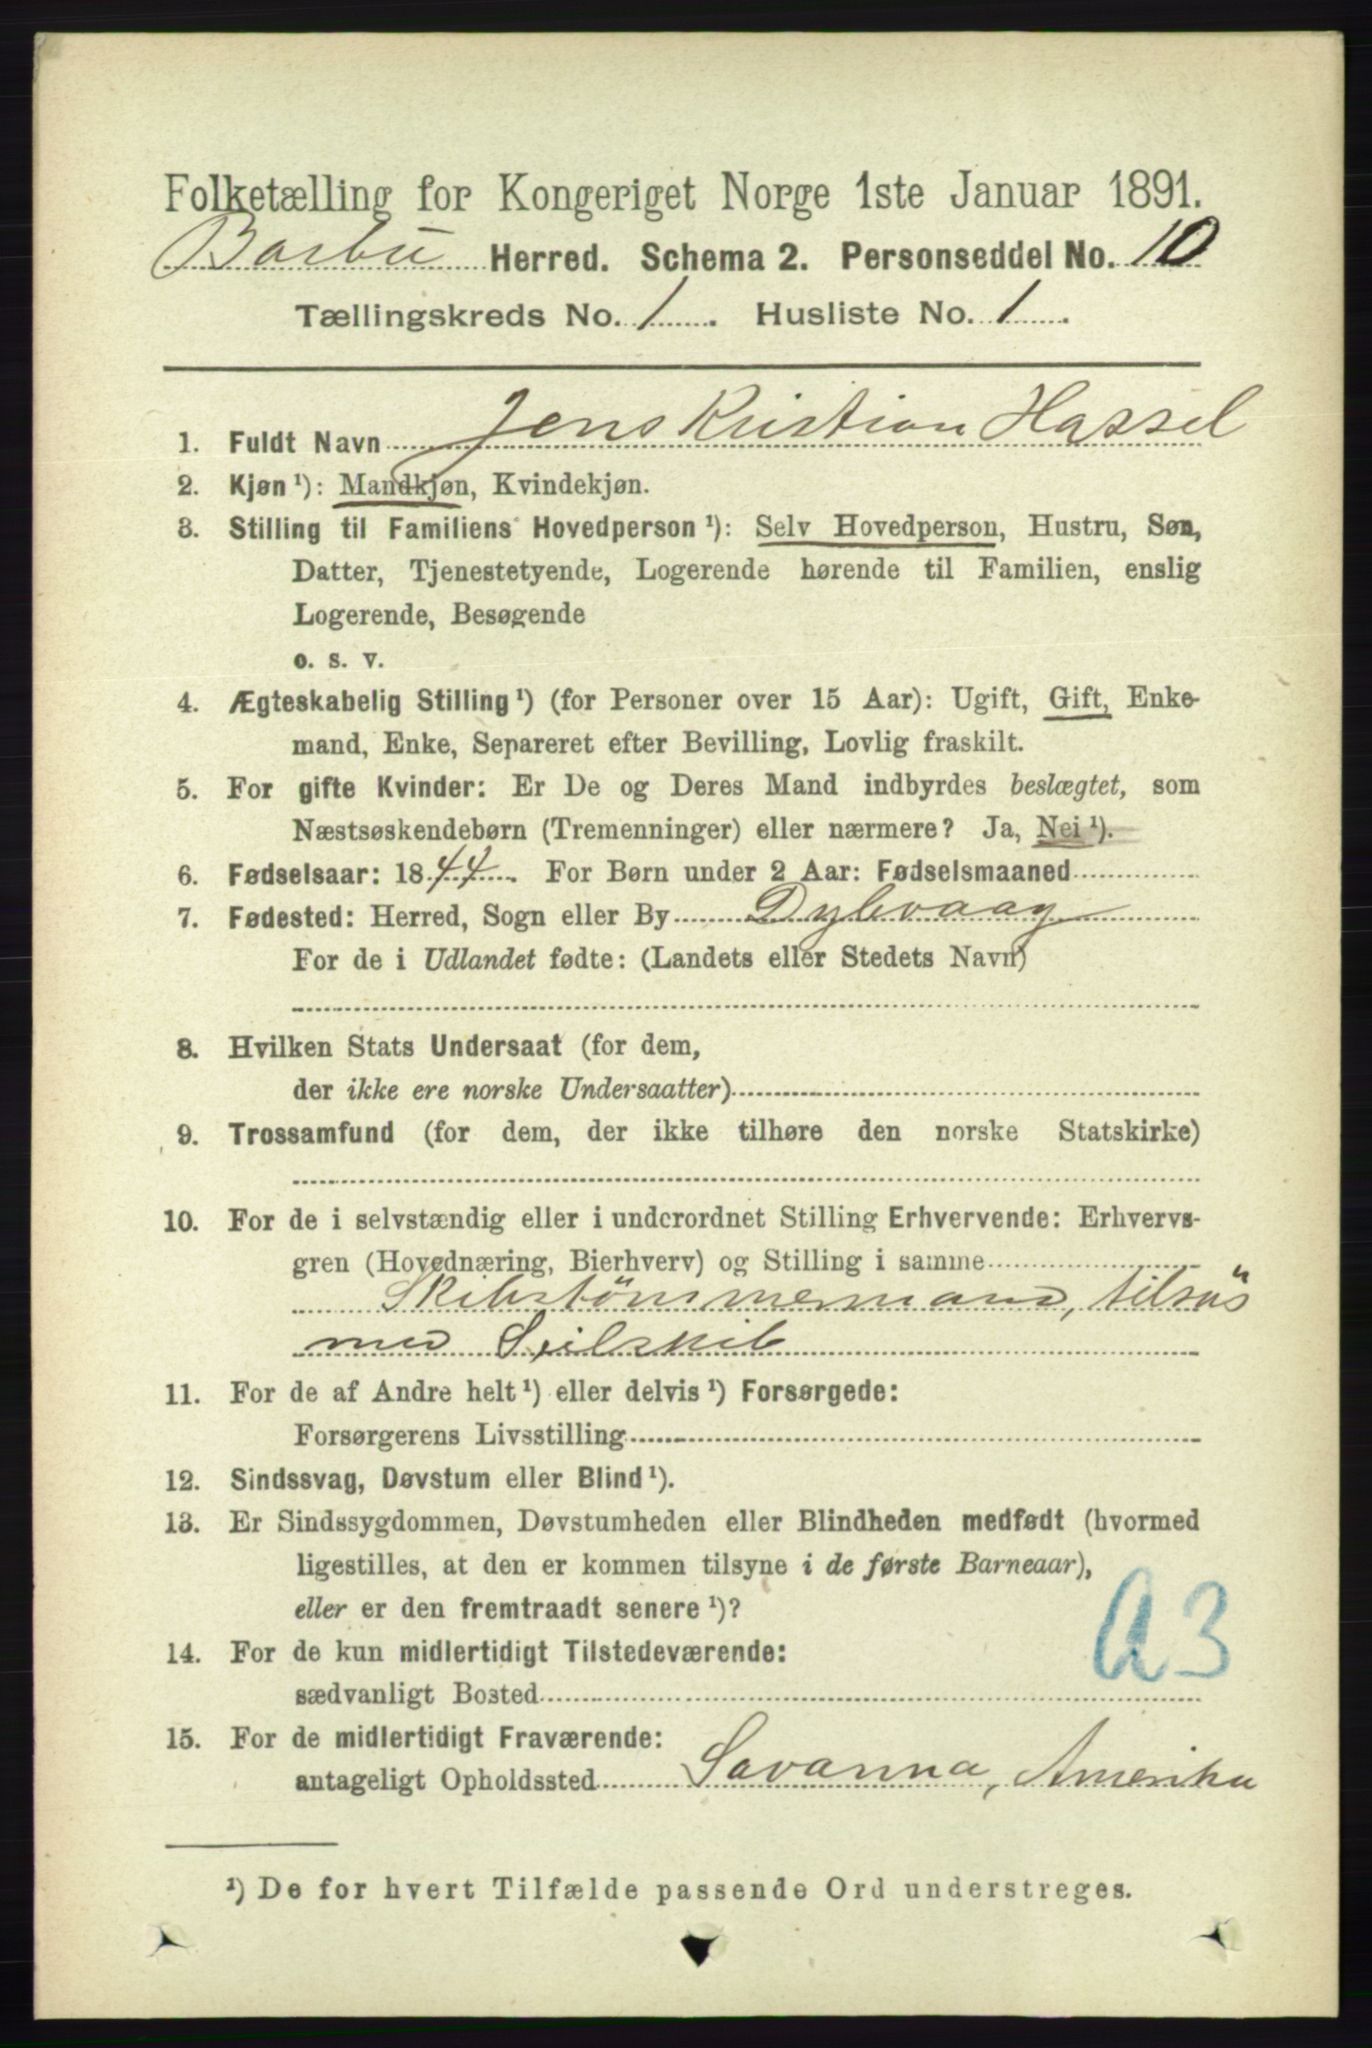 Folketælling for Kongeriget Norge 1ste Januar 1891.
Barbu Herred. Schema 2. Personseddel No. 10
Tællingskreds No. 1. Husliste No. 1.
1. Fuldt Navn Jens Kristian Hassel
2. Kjøn ¹): Mandkjøn, Kvindekjøn.
3. Stilling til Familiens Hovedperson ¹): Selv Hovedperson, Hustru, Søn,
Datter, Tjenestetyende, Logerende hørende til Familien, enslig
Logerende, Besøgende
o. s. v.
4. Ægteskabelig Stilling ¹) (for Personer over 15 Aar): Ugift, Gift, Enke-
mand, Enke, Separeret efter Bevilling, Lovlig fraskilt.
5. For gifte Kvinder: Er De og Deres Mand indbyrdes beslægtet, som
Næstsøskendebørn (Tremenninger) eller nærmere? Ja, Nei ¹).
6. Fødselsaar: 1844. For Børn under 2 Aar: Fødselsmaaned
7. Fødested: Herred, Sogn eller By Dybvaag
For de i Udlandet fødte: (Landets eller Stedets Navn)
8. Hvilken Stats Undersaat (for dem,
der ikke ere norske Undersaatter)
9. Trossamfund (for dem, der ikke tilhøre den norske Statskirke)
10. For de i selvstændig eller i underordnet Stilling Erhvervende: Erhvervs-
gren (Hovednæring, Bierhverv) og Stilling i samme
Skibstømmermand, tilsøs
med Seilskib
11. For de af Andre helt ¹) eller delvis ¹) Forsørgede:
Forsørgerens Livsstilling
12. Sindssvag, Døvstum eller Blind ¹).
13. Er Sindssygdommen, Døvstumheden eller Blindheden medfødt (hvormed
ligestilles, at den er kommen tilsyne i de første Barneaar),
eller er den fremtraadt senere ¹)?
A3
14. For de kun midlertidigt Tilstedeværende:
sædvanligt Bosted
15. For de midlertidigt Fraværende:
antageligt Opholdssted Savanna, Amerika
¹) De for hvert Tilfælde passende Ord understreges.